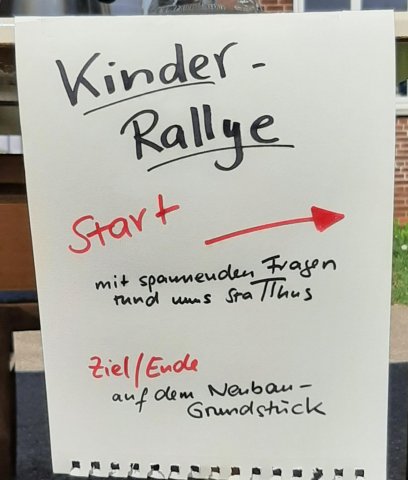 Kinder-
Rallye
Start
mit spannenden Fragen
rund ums StaTThus
Ziel/Ende
auf dem Neubau-
Grundstück